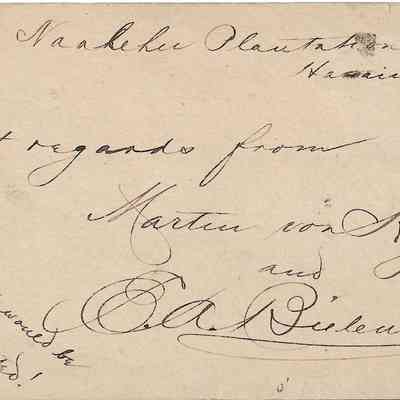 Naalehu Plantation
Hawaii
regards from
Martin von
and
E. A. Bielen
would be